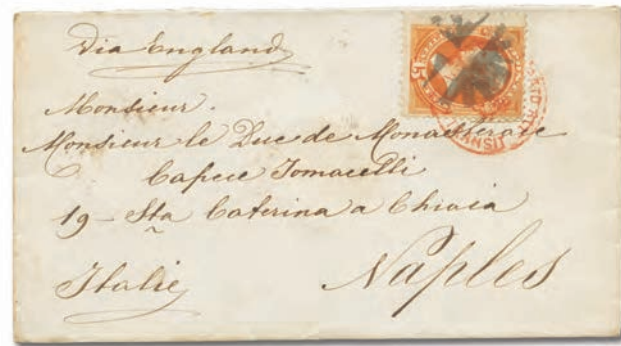 Via England
Monsieur.
Monsieur le Duc de Monasterace
Capece Tomacelli
19 - Sta Caterina a Chiaia
Naples
Italie
TRANSIT